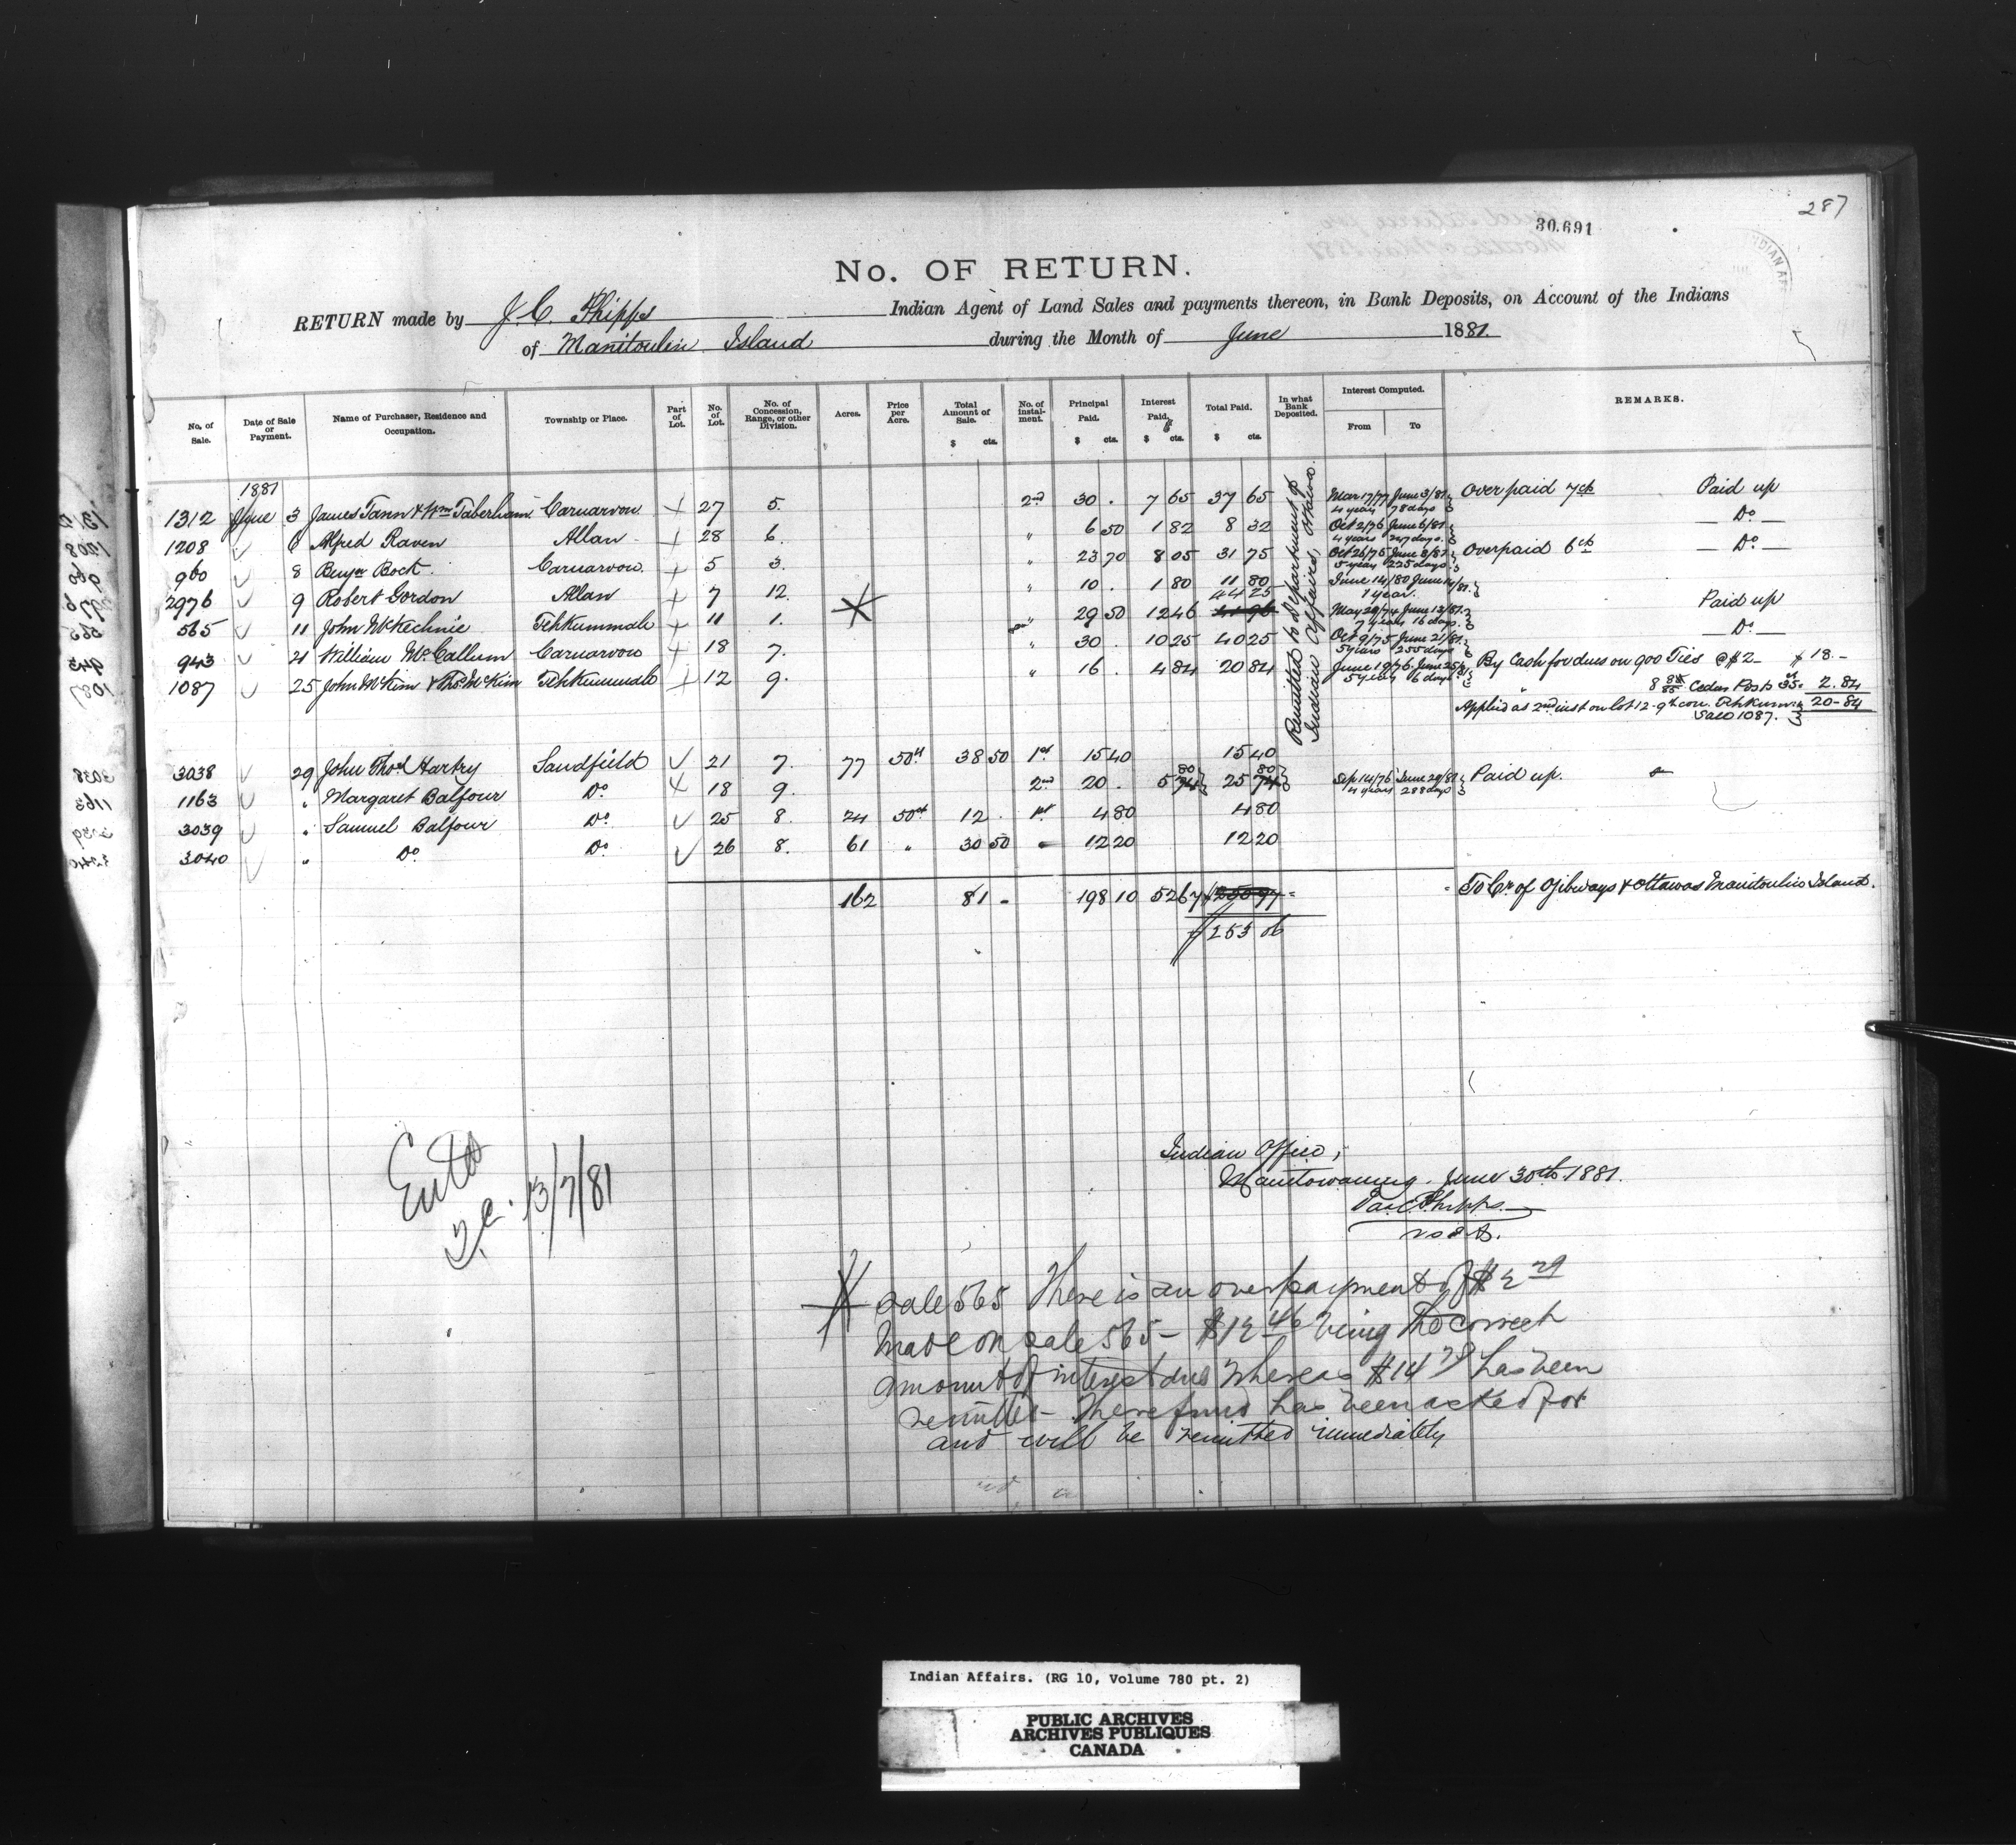 287
30.691
No. OF RETURN.
RETURN made by J. C. Phipps Indian Agent of Land Sales and payments thereon, in Bank Deposits, on Account of the Indians
of Manitoulin Island during the Month of June 1881.
No. of Sale. Date of Sale or Payment. Name of Purchaser, Residence and Occupation. Township or Place. Part of Lot. No. of Lot. No. of Concession, Range, or other Division. Acres. Price per Acre. Total Amount of Sale. $ cts. No. of instalment. Principal Paid. $ cts. Interest Paid. $ cts. Total Paid. $ cts. In what Bank Deposited. Interest Computed. From To REMARKS.
Remitted to Department of Indian Affairs, Ottawa.
1881
1312 June 3 James Tann & Wm Taberham Carnarvon + 27 5. 2nd 30 . 7 65 37 65 Mar 17/77 June 3/81 4 years 78 days Overpaid 7cts Paid up
1208 6 Alfred Raven Allan + 28 6. " 6 50 1 82 8 32 Oct 2/76 June 6/81 4 years 247 days Do
960 8 Benjn Bock Carnarvon + 5 3. " 23 70 8 05 31 75 Oct 26/75 June 8/81 5 years 225 days Overpaid 6cts Do
2976 9 Robert Gordon Allan + 7 12. " 10 . 1 80 11 80 June 14/80 June 14/81 1 year.
565 11 John McKechnie Tehkummah + 11 1. " 29 50 12 46 44 25 41 96 May 29/74 June 13/81 7 years 16 days Paid up
943 21 William McCallum Carnarvon + 18 7. " 30 . 10 25 40 25 Oct 9/75 June 21/81 5 years 255 days Do
1087 25 John McKim & Thos McKim Tehkummah + 12 9. " 16 . 4 84 20 84 June 19/76 June 25/81 5 years 6 days By Cash for dues on 900 Ties @ $2 $18.-
" Cedar Posts 2.84
Applied as 2nd inst on lot 12 - 9th con. Tehkum. 20-84
Sale 1087.
3038 29 John Thos Hartry Sandfield 21 7. 77 50cts 38 50 1st 15 40 15 40
1163 " Margaret Balfour Do + 18 9. 2nd 20 . 5 74 80 25 74 80 Sep 14/76 June 29/81 4 years 288 days Paid up.
3039 " Samuel Balfour Do 25 8. 24 50cts 12 . 1st 4 80 4 80
3040 " Do Do 26 8. 61 " 30 50 " 12 20 12 20
162 81 - 198 10 52 67 $250 77 To Cr of Ojibways & Ottawas Manitoulin Island.
$253 06
Entd
13/7/81
Indian Office,
Manitowaning. June 30th 1881.
Jas C Phipps
Sale 565 There is an overpayment of $2 29
made on sale 565 - $12 46 being the correct
amount of interest due whereas $14 75 has been
remitted - The refund has been asked for
and will be remitted immediately
Indian Affairs. (RG 10, Volume 780 pt. 2)
PUBLIC ARCHIVES
ARCHIVES PUBLIQUES
CANADA